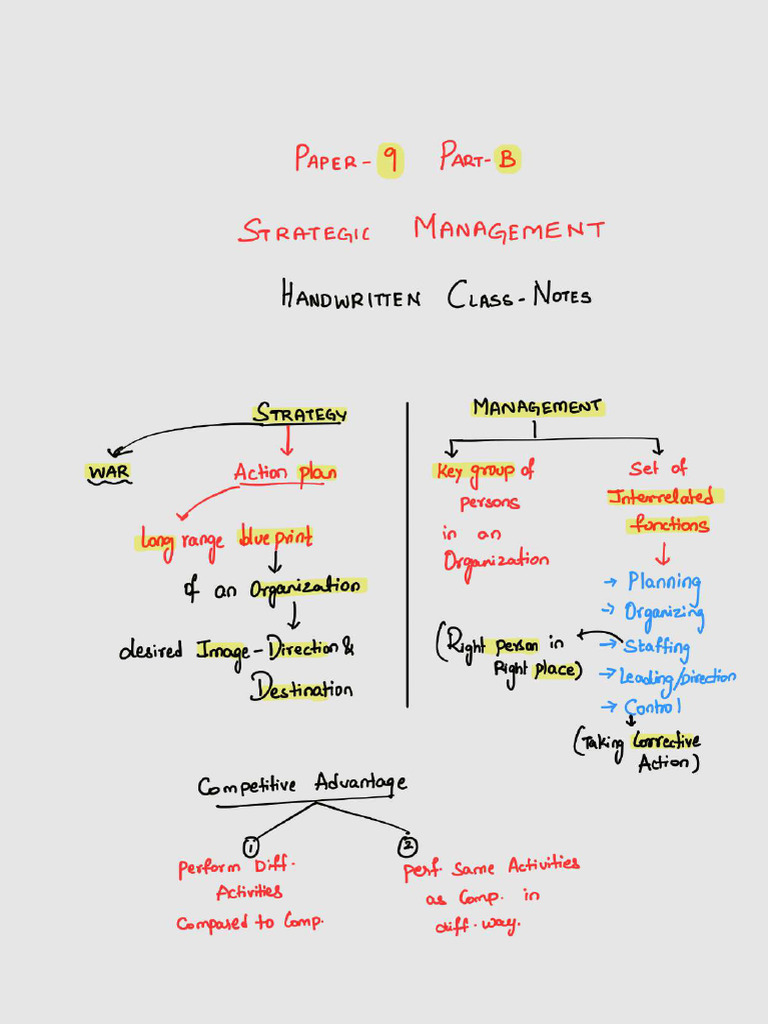 PAPER-9 PART-B
STRATEGIC MANAGEMENT
HANDWRITTEN CLASS-NOTES
STRATEGY
WAR
Action plan
long range blue print
of an Organization
desired Image-Direction &
Destination
MANAGEMENT
Key group of
persons
in an
Organization
Set of
Interrelated
functions
→ Planning
→ Organizing
→ Staffing
(Right person in
Right place)
→ Leading/Direction
→ Control
(Taking Corrective
Action)
Competitive Advantage
①
perform Diff.
Activities
Compared to Comp.
②
perf. Same Activities
as Comp. in
diff. way.